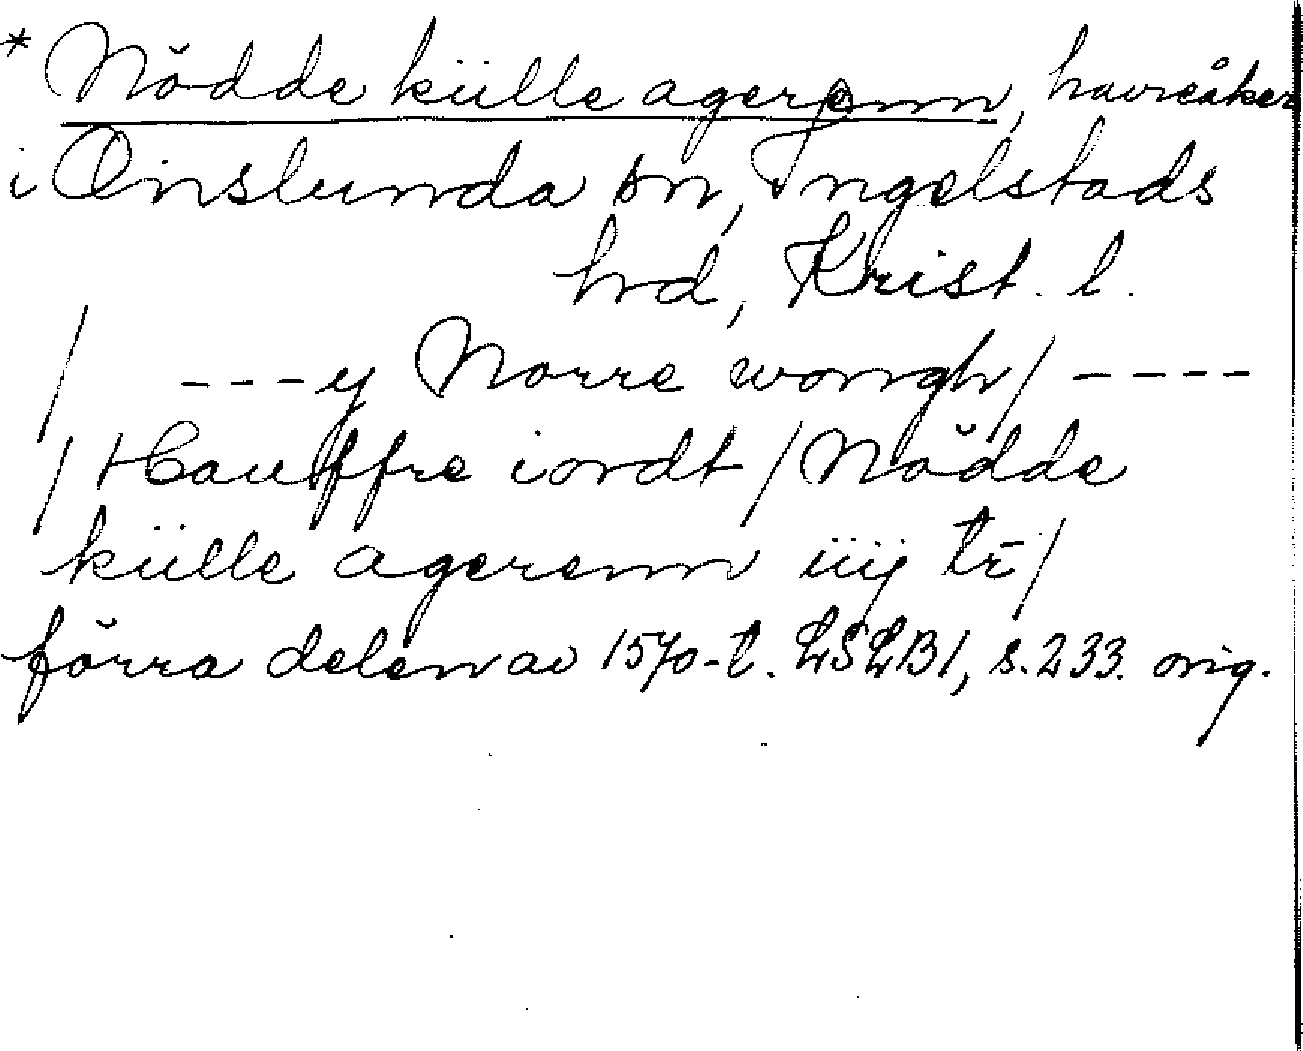 * Nödde külle agerenn, havreåker
i Onslunda sn, Ingelstads
hrd, Krist. l.
/ ---y Norre wongh/ ----
/ Hauffre iordt / Nödde
külle agerenn iiij tr̄ /
förra delen av 1570-t. LSLB1, s. 233. orig.